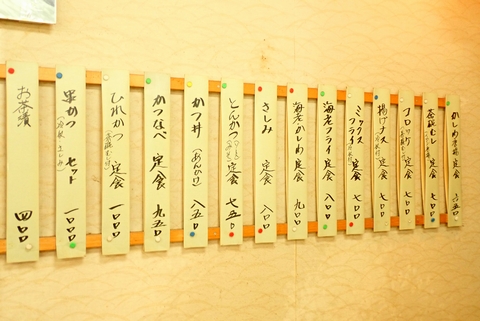 かしわ南蛮定食 六五〇
茶碗むし定食 七〇〇
コロッケ定食 七〇〇
揚げナス定食 七〇〇
ミックスフライ定食 七〇〇
海老フライ定食 八〇〇
海老かしわ定食 九〇〇
さしみ 定食 八〇〇
とんかつ定食 七五〇
かつ丼(あんかけ) 八五〇
かつなべ 定食 九五〇
ひれかつ 定食 一〇〇〇
串かつ セット 一〇〇〇
お茶漬 四〇〇